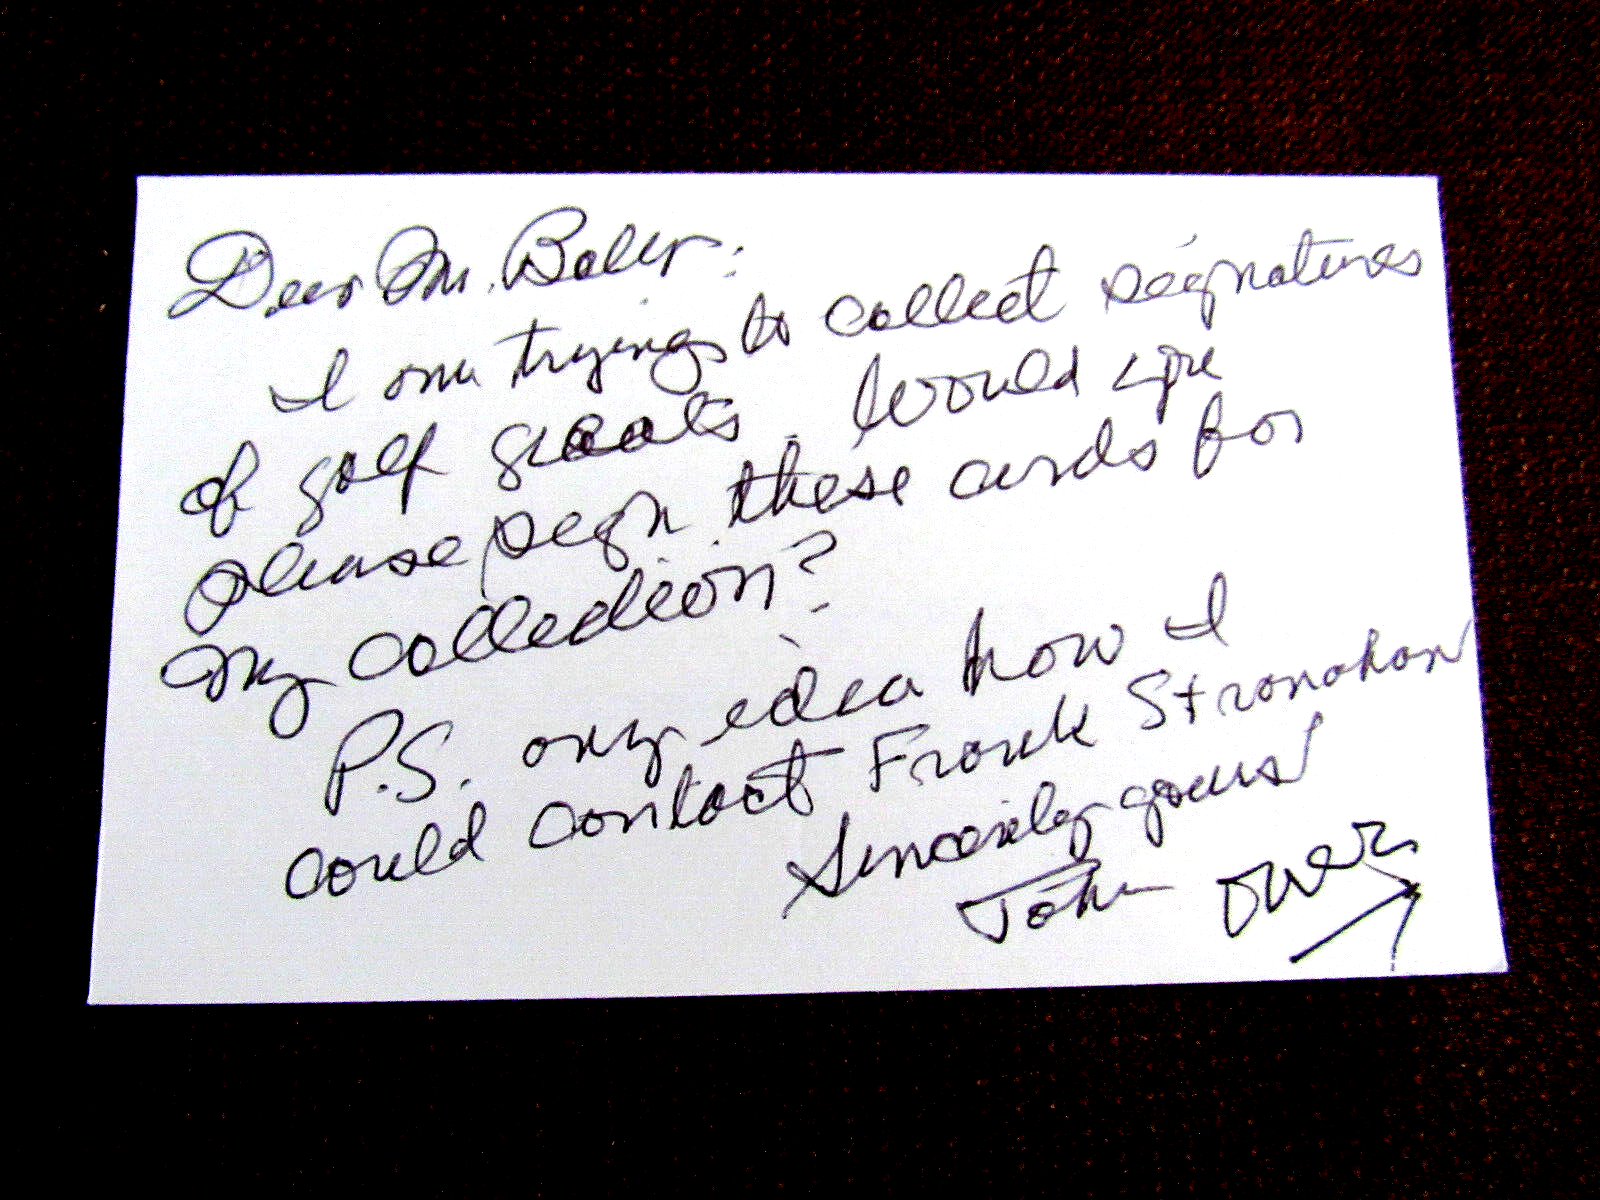 Dear Mr. Boler:
I am trying to collect signatures
of golf greats. Would you
please sign these cards for
my collection?
P.S. any idea how I
could contact Frank Stranahan
Sincerely yours
John
over